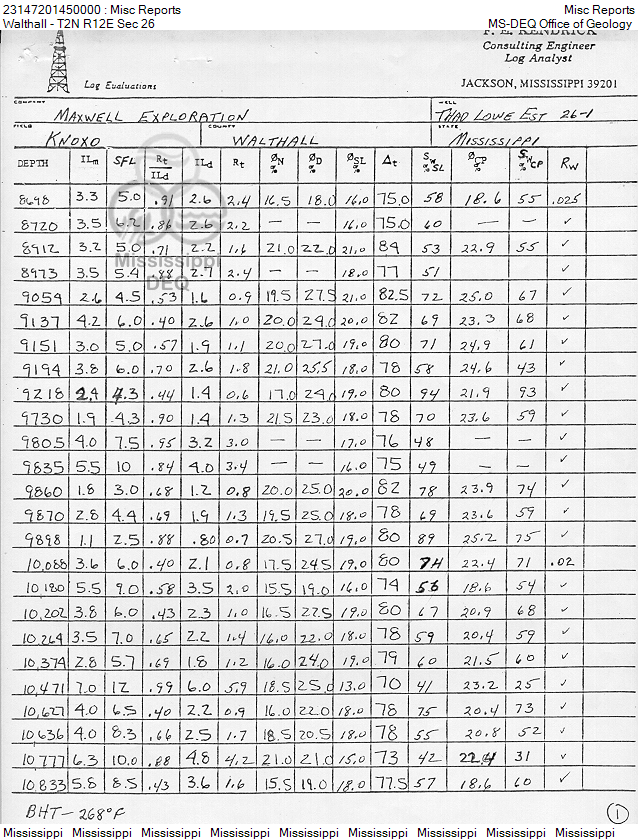 23147201450000 : Misc Reports Misc Reports
Walthall - T2N R12E Sec 26 MS-DEQ Office of Geology
F. E. KENDRICK
Consulting Engineer
Log Analyst
Log Evaluations JACKSON, MISSISSIPPI 39201
COMPANY WELL
MAXWELL EXPLORATION THAD LOWE EST 26-1
FIELD COUNTY STATE
KNOXO WALTHALL MISSISSIPPI
DEPTH ILm SFL Rt/ILd ILd Rt ØN % ØD % ØSL % Δt Sw % SL ØCP % Sw % CP RW
8698 3.3 5.0 .91 2.6 2.4 16.5 18.0 16.0 75.0 58 18.6 55 .025
8720 3.5 6.2 .86 2.6 2.2 — — 16.0 75.0 60 — — ✓
8912 3.2 5.0 .71 2.2 1.6 21.0 22.0 21.0 84 53 22.9 55 ✓
8973 3.5 5.4 .88 2.7 2.4 — — 18.0 77 51 ✓
9054 2.6 4.5 .53 1.6 0.9 19.5 27.5 21.0 82.5 72 25.0 67 ✓
9137 4.2 6.0 .40 2.6 1.0 20.0 24.0 20.0 82 69 23.3 68 ✓
9151 3.0 5.0 .57 1.9 1.1 20.0 27.0 19.0 80 71 24.9 61 ✓
9194 3.8 6.0 .70 2.6 1.8 21.0 25.5 18.0 78 58 24.6 43 ✓
9218 2.9 4.3 .44 1.4 0.6 17.0 24.0 19.0 80 94 21.9 93 ✓
9730 1.9 4.3 .90 1.4 1.3 21.5 23.0 18.0 78 70 23.6 59 ✓
9805 4.0 7.5 .95 3.2 3.0 — — 17.0 76 48 — — ✓
9835 5.5 10 .84 4.0 3.4 — — 16.0 75 49 — — ✓
9860 1.8 3.0 .68 1.2 0.8 20.0 25.0 20.0 82 78 23.9 74 ✓
9870 2.8 4.4 .69 1.9 1.3 19.5 25.0 18.0 78 69 23.6 59 ✓
9898 1.1 2.5 .88 .80 0.7 20.5 27.0 19.0 80 89 25.2 75 ✓
10,088 3.6 6.0 .40 2.1 0.8 17.5 24.5 19.0 80 74 22.4 71 .02
10,180 5.5 9.0 .58 3.5 2.0 15.5 19.0 16.0 74 56 18.6 54 ✓
10,202 3.8 6.0 .43 2.3 1.0 16.5 22.5 19.0 80 67 20.9 68 ✓
10,264 3.5 7.0 .65 2.2 1.4 16.0 22.0 18.0 78 59 20.4 59 ✓
10,374 2.8 5.7 .69 1.8 1.2 16.0 24.0 19.0 79 60 21.5 60 ✓
10,471 7.0 12 .99 6.0 5.9 18.5 25.0 13.0 70 41 23.2 25 ✓
10,627 4.0 6.5 .40 2.2 0.9 16.0 22.0 18.0 78 75 20.4 73 ✓
10,636 4.0 8.3 .66 2.5 1.7 18.5 20.5 18.0 78 55 20.8 52 ✓
10,777 6.3 10.0 .88 4.8 4.2 21.0 21.0 15.0 73 42 22.4 31 ✓
10,833 5.8 8.5 .43 3.6 1.6 15.5 19.0 18.0 77.5 57 18.6 60 ✓
Mississippi
DEQ
BHT - 268°F 1
Mississippi Mississippi Mississippi Mississippi Mississippi Mississippi Mississippi Mississippi Mississippi